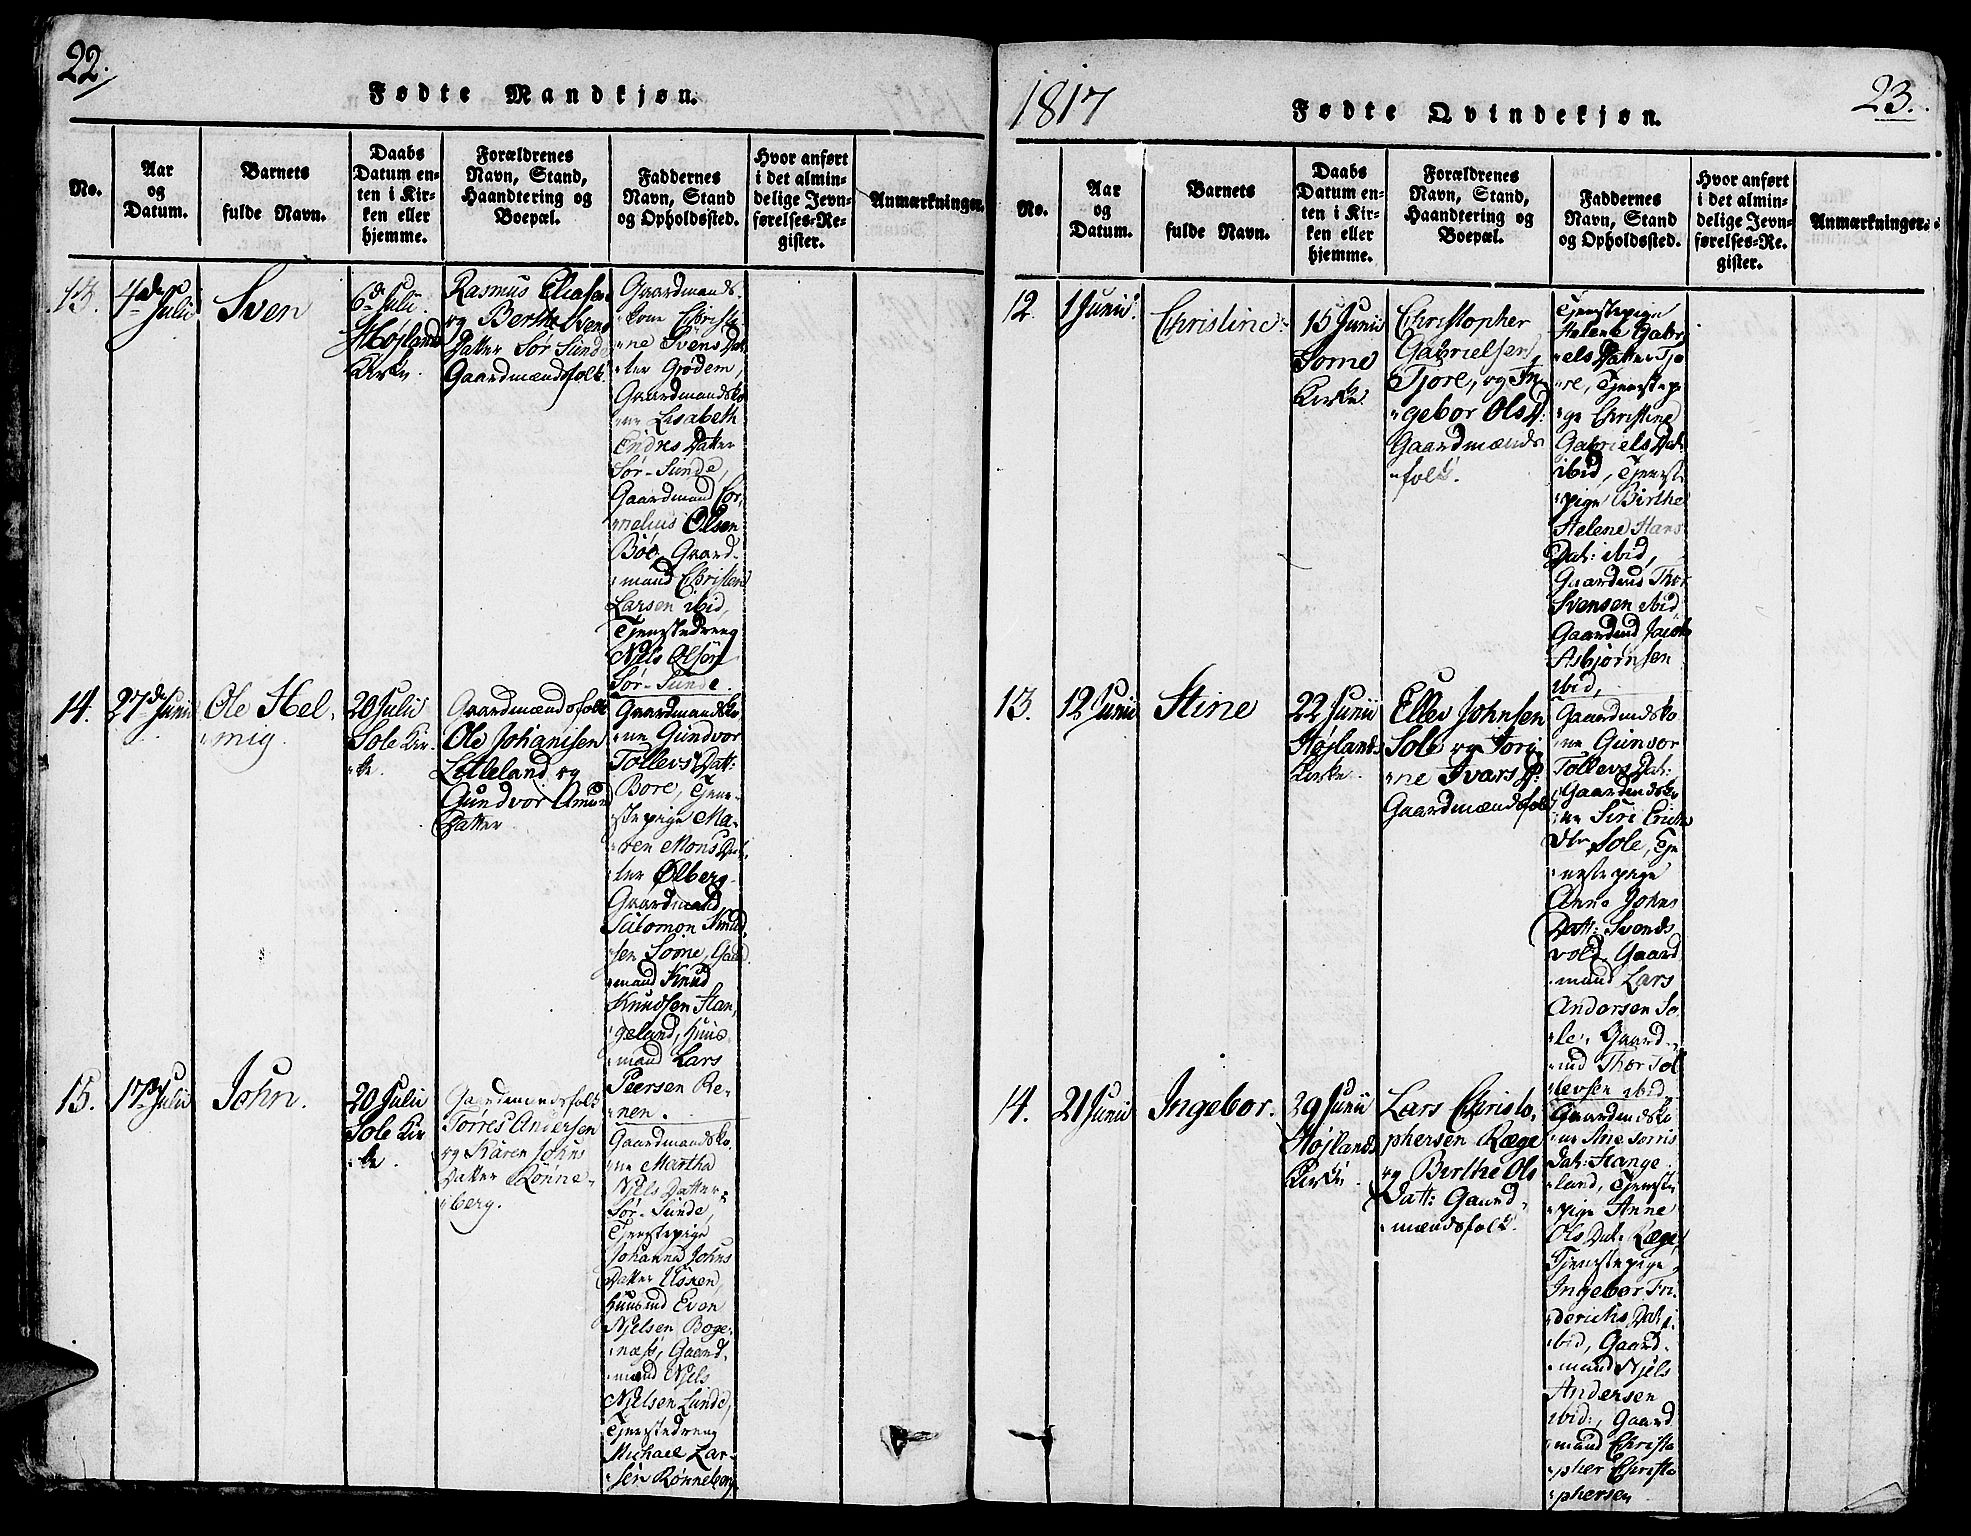 22.
Fødte Mandkjøn.
No.
Aar
og
Datum.
Barnets
fulde Navn.
Daabs
Datum en-
ten i Kir-
ken eller
hjemme.
Forældrenes
Navn, Stand,
Haandtering og
Boepæl.
Faddernes
Navn, Stand
og Opholdssted.
Hvor anført
i det almin-
delige Jevn-
førelses-Re-
gister.
Anmærkninger.
13.
4de Julii
Sven
6te Julii
Højlands
Kirke.
Rasmus Eliasen
og Berthe Svens
Datter Sør Sunde
Gaardmændsfolk.
Gaardmands-
kone Christi-
ne Svens Dat-
ter Grødem,
Gaardmandsko
ne Lisabeth
Endres Datter
Sør-Sunde,
Gaardmand Cor-
nelius Olsen
Bøe, Gaard-
mand Christen
Larsen ibid,
Tjenestedreng
Njels Olsen
Sør-Sunde.
14.
27de Junii
Ole Hel-
mig.
20 Julii
Sole Kir-
ke.
Gaardmændsfolk
Ole Johanisen
Lilleland og
Gundvor Amund
Datter
Gaardmandsko
ne Gundvor
Tollevs Datt:
Bore, Tjene-
stepige Ma-
ren Mons Dat-
ter Ølberg
Gaardmand
Salomon Knud
sen Some, Gaard
mand Knud
Knudsen Stan-
geland, Huus-
mand Lars
Peersen Re-
nen.
15.
17de Julii
John.
20 Julii
Sole Kir-
ke.
Gaardmændsfolk
Tørres Andersen
og Karen Johns
Datter Rønne-
berg.
Gaardmandsko
ne Martha
Njels Datter
Sør-Sunde,
Tjenestepige
Johanna Johns
Datter
Huusmd Even
Njelsen Boge-
næss, Gaard-
mand Njels
Njelsen Lunde,
Tjenestedreng
Michael Lar-
sen Rønneberg
1817
Fødte Qvindekjøn.
23.
No.
Aar
og
Datum.
Barnets
fulde Navn.
Daabs
Datum en-
ten i Kir-
ken eller
hjemme.
Forældrenes
Navn, Stand,
Haandtering og
Boepæl.
Faddernes
Navn, Stand
og Opholdssted.
Hvor anført
i det almin-
delige Jevn-
førelses-Re-
gister.
Anmærkninger.
12.
1 Junii.
Christine.
15 Junii
Some
Kirke.
Christopher
Gabrielsen
Tjore, og In-
gebor Ols D:
Gaardmænds
folk.
Tjenestepige
Helene Gabri
els Datter Tjo
re, Tjenestepi
ge Christine
Gabriels Dat:
ibid, Tjeneste
pige Birthe
Helene Hans
Dat: ibid,
Gaardmd Thor
Svensen ibid,
Gaardmd Jacob
Asbjørnsen
ibid,
13.
12 Junii
Stine
22 Junii
Højlands
Kirke.
Ellev Johnsen
Sole og Jori-
ne Ivars D:
Gaardmændsfolk
Gaardmdsko
ne Gunvor
Tollevs Dat:
Gaardmdsko
ne Siri Erichs
Dtr Sole, Tje
nestepige
Anne Johns
Datt: Svends
vold, Gaard
mand Lars
Andersen So
le, Gaard-
md Thor Tol
levsen ibid,
14.
21 Junii
Ingebor.
29 Junii
Højlands
Kirke.
Lars Christo-
phersen Ræge
og Birthe Ols
Datt: Gaard-
mændsfolk.
Gaardmdsko
ne Ane
Dat: Stange
land, Tjeneste
pige Anne
Ols Dat: Ræge,
Tjenestepige
Ingebor Fri
derichs Dat: i-
bid, Gaard-
mand Njels
Andersen
ibid, Gaard
mand Christo
pher Christo
phersen